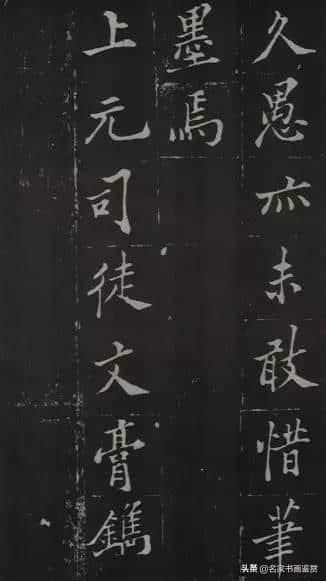 久愚亦未敢惜筆
墨焉
上元司徒文膏鐫
头条 @名家书画鉴赏